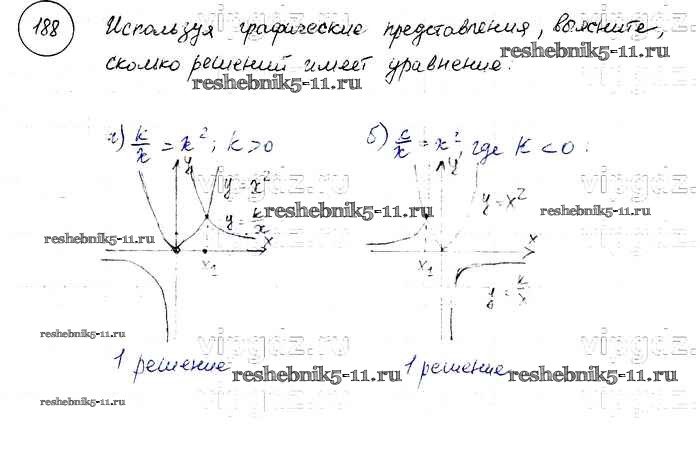 188 Используя графические представления, выясните,
скмко решений имеет уравнение:
reshebnik5-11.ru
reshebnik5-11.ru
vipgdz.ru
а) k/x = x²; k>0 б) k/x = x², где K<0:
y y
y=x² y=x²
y=k/x
reshebnik5-11.ru reshebnik5-11.ru reshebnik5-11.ru
x x
x₁ x₁
y=k/x
reshebnik5-11.ru
vipgdz.ru vipgdz.ru
1 решение 1 решение
reshebnik5-11.ru reshebnik5-11.ru
reshebnik5-11.ru
vipgdz.ru